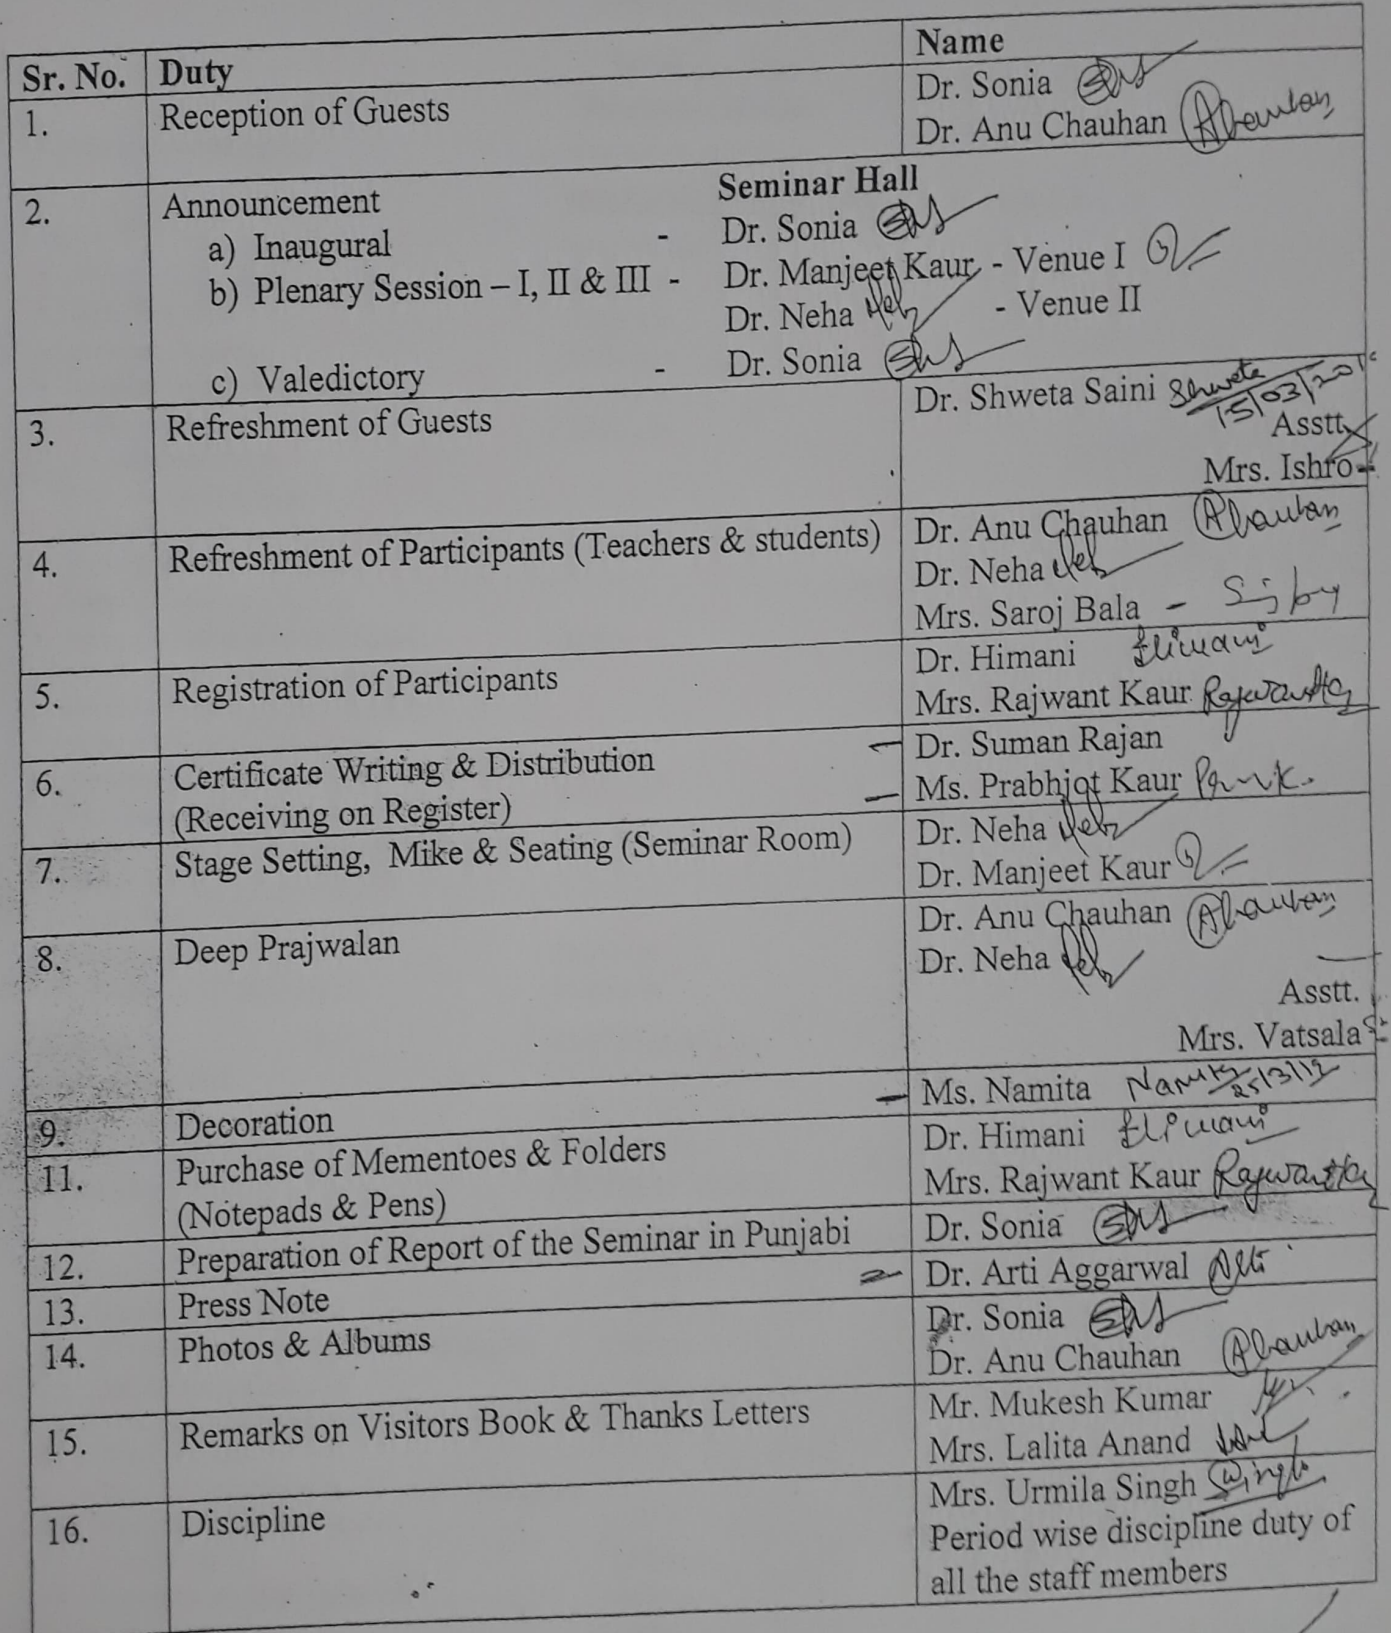 Sr. No. Duty Name
1. Reception of Guests Dr. Sonia
Dr. Anu Chauhan AChauhan
2. Announcement Seminar Hall
a) Inaugural - Dr. Sonia
b) Plenary Session – I, II & III - Dr. Manjeet Kaur - Venue I
Dr. Neha Neh - Venue II
c) Valedictory - Dr. Sonia
3. Refreshment of Guests Dr. Shweta Saini Shweta
15/03/201
Asstt.
Mrs. Ishro
4. Refreshment of Participants (Teachers & students) Dr. Anu Chauhan AChauhan
Dr. Neha Neh
Mrs. Saroj Bala -
5. Registration of Participants Dr. Himani Himani
Mrs. Rajwant Kaur
6. Certificate Writing & Distribution Dr. Suman Rajan
(Receiving on Register) Ms. Prabhjot Kaur
7. Stage Setting, Mike & Seating (Seminar Room) Dr. Neha Neh
Dr. Manjeet Kaur
8. Deep Prajwalan Dr. Anu Chauhan AChauhan
Dr. Neha Neh
Asstt.
Mrs. Vatsala
9. Decoration Ms. Namita Namita
11. Purchase of Mementoes & Folders Dr. Himani Himani
(Notepads & Pens) Mrs. Rajwant Kaur
12. Preparation of Report of the Seminar in Punjabi Dr. Sonia
13. Press Note Dr. Arti Aggarwal
14. Photos & Albums Dr. Sonia
Dr. Anu Chauhan AChauhan
15. Remarks on Visitors Book & Thanks Letters Mr. Mukesh Kumar
Mrs. Lalita Anand
16. Discipline Mrs. Urmila Singh Singh
Period wise discipline duty of
all the staff members